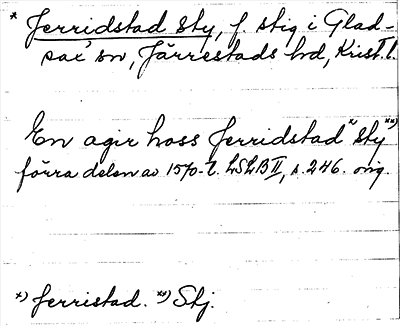 * Jerridstad sty, f. stig i Glad-
sax sn, Järrestads hd, Krist. l.
En agir hoss Jerridstad *) sty **)
förra delen av 1570-t. LSLB II, s. 246. orig.
*) Jerristad. **) Stj.